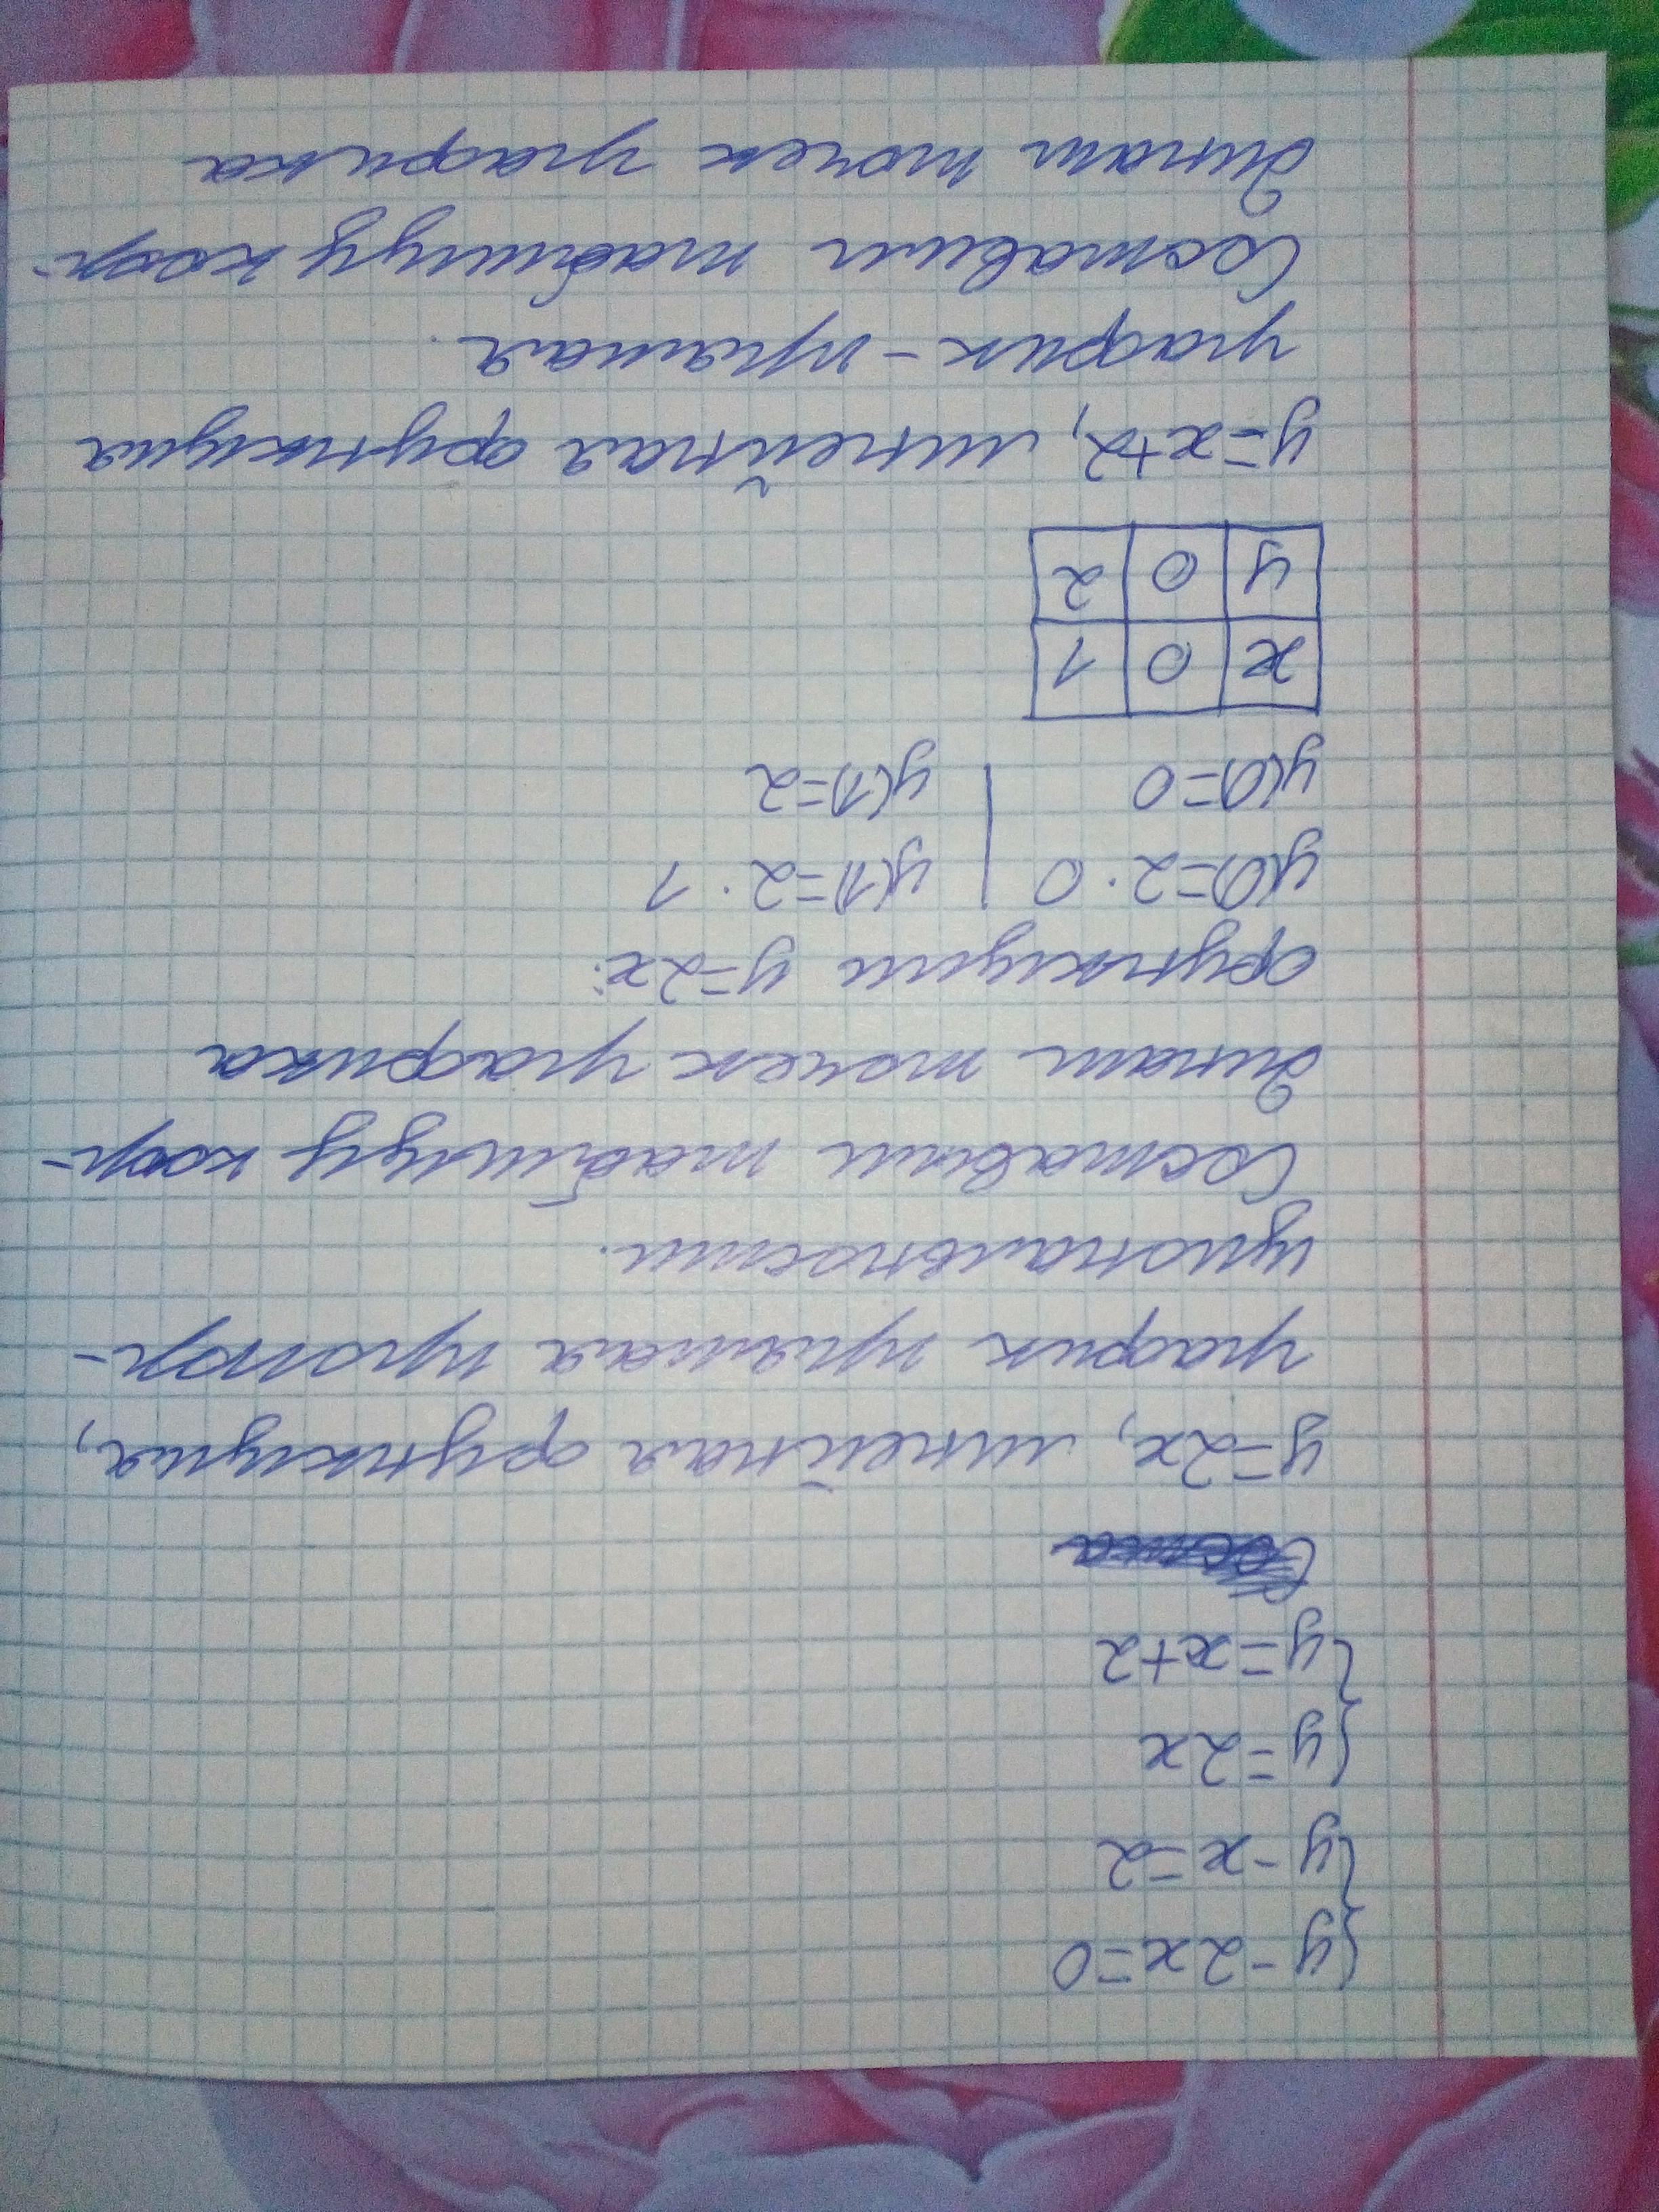 {y-2x=0
{y-x=2
{y=2x
{y=x+2
y=2x, линейная функция,
график прямая пропор-
циональности.
Составим таблицу коор-
динат точек графика
функции y=2x:
y(0)=2·0 | y(1)=2·1
y(0)=0 | y(1)=2
x 0 1
y 0 2
y=x+2, линейная функция
график - прямая.
Составим таблицу коор-
динат точек графика